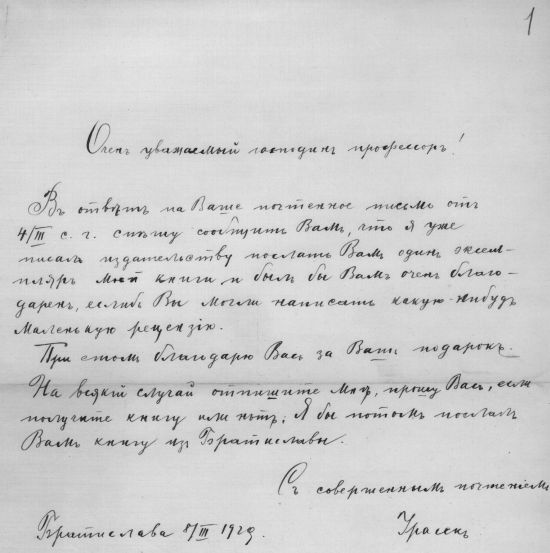 1
Очень уважаемый господинъ профессоръ!
Въ отвѣтъ на Ваше почтенное письмо отъ
4/III с. г. спѣшу сообщить Вамъ, что я уже
писалъ издательству послать Вамъ одинъ эксем-
пляръ моей книги и былъ бы Вамъ очень благо-
даренъ, еслибъ Вы могли написать какую-нибудь
маленькую рецензію.
При етомъ благодарю Васъ за Вашъ подарокъ.
На всякій случай отпишите мнѣ, прошу Васъ, если
получите книгу или нѣтъ; Я бы потомъ послалъ
Вамъ книгу изъ Братиславы.
Съ совершеннымъ почтеніемъ
Братислава 8/III 1929.